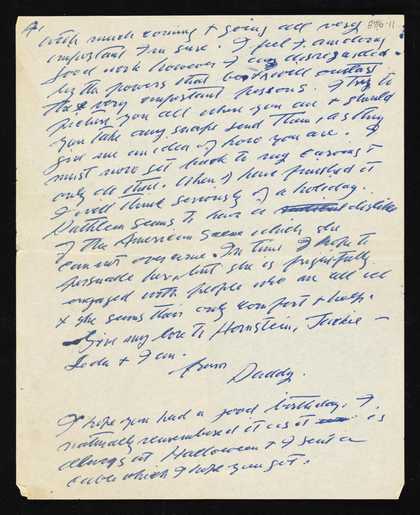 A/
896-11
with much coming + going all very
important I'm sure. I feel I am doing
good work however I am disregarded
by the powers that be
the very important persons. I try to
picture you all where you are + should
you take any snaps send them, as they
give me an idea of how you are. I
must now get back to my
only all that. When I have finished it
I will think seriously of a holiday.
Kathleen seems to have a dislike
of the American scene which she
cannot overcome. In time I hope to
persuade her, but she is frightfully
engaged with people who are all ill
+ she seems their only comfort + help.
Give my love to Hornstein, Jackie —
+ Ian.
from
Daddy.
I hope you had a good birthday. I
naturally remembered it as it is
always at Halloween + I sent a
cable which I hope you got.